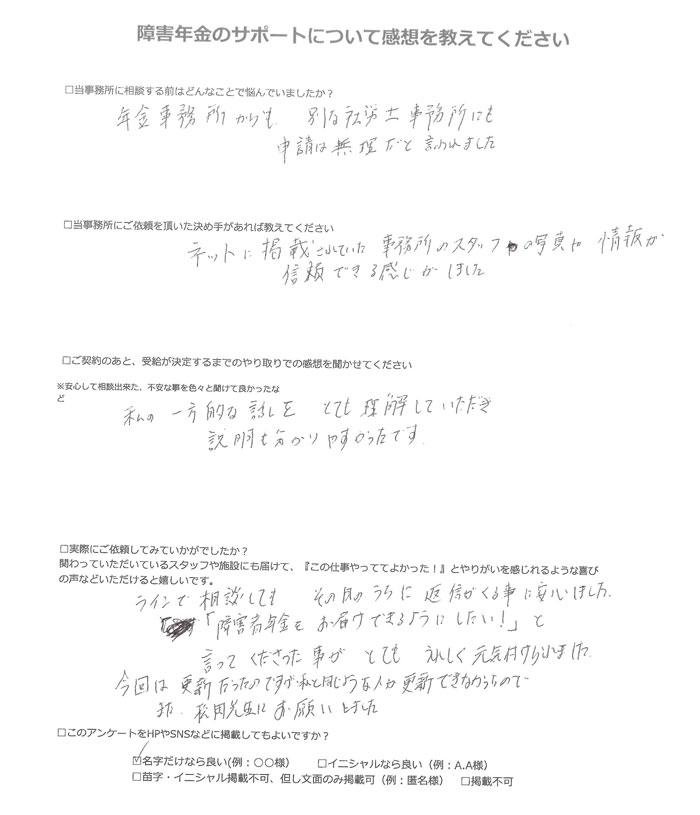 障害年金のサポートについて感想を教えてください
□当事務所に相談する前はどんなことで悩んでいましたか？
年金事務所からも 別な社労士事務所にも
申請は無理だと言われました
□当事務所にご依頼を頂いた決め手があれば教えてください
ネットに掲載されていた事務所のスタッフの写真や情報が
信頼できる感じがしました
□ご契約のあと、受給が決定するまでのやり取りでの感想を聞かせてください
※安心して相談出来た、不安な事を色々と聞けて良かったな
ど
私の一方的な話しを とても理解していただき
説明も分かりやすかったです.
□実際にご依頼してみていかがでしたか？
関わっていただいているスタッフや施設にも届けて、『この仕事やっててよかった！』とやりがいを感じれるような喜び
の声などいただけると嬉しいです。
ラインで相談しても その日のうちに返信がくる事に安心しました.
「障害者年金をお届けできるようにしたい！」と
言ってくださった事が とても うれしく元気付けられました.
今回は更新だったのですが私と同じような人が更新できなかったので
また、松岡先生にお願いしました
□このアンケートをHPやSNSなどに掲載してもよいですか？
☑名字だけなら良い(例：〇〇様） □イニシャルなら良い（例：A.A様）
□苗字・イニシャル掲載不可、但し文面のみ掲載可（例：匿名様） □掲載不可